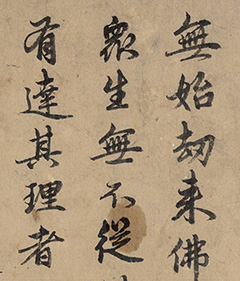 無始劫来佛
衆生無不從
有達其理者